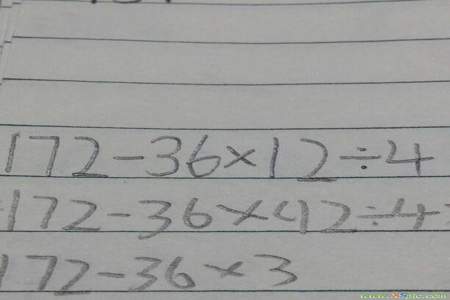 172-36×12÷4
172-36×(12÷4
172-36×3